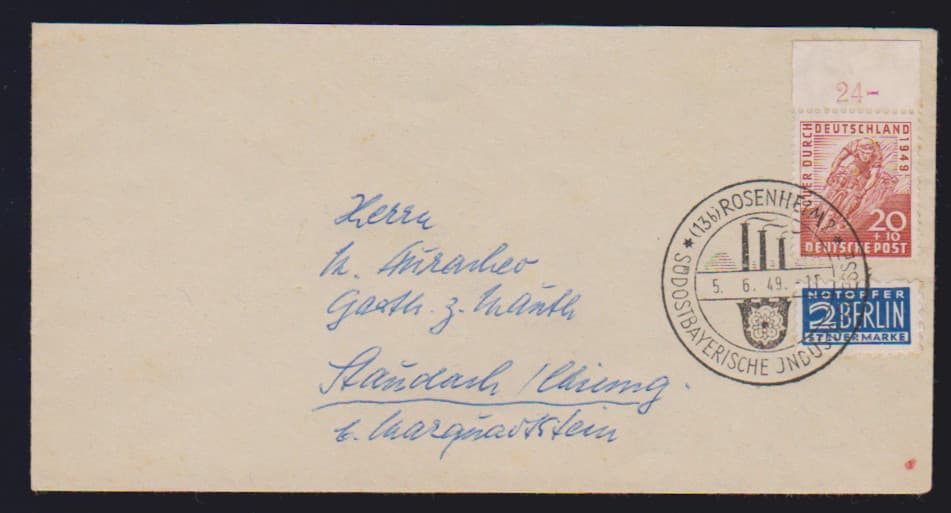 24-
DURCH DEUTSCHLAND 1949
20
+10
DEUTSCHE POST
(13b) ROSENHEIM 2
5. 6. 49. - 11
SÜDOSTBAYERISCHE JNDUS
NOTOPFER
2 BERLIN
STEUERMARKE
Herrn
Gasth. z. Mauth
Staudach / Chiemg.
b. Marquartstein